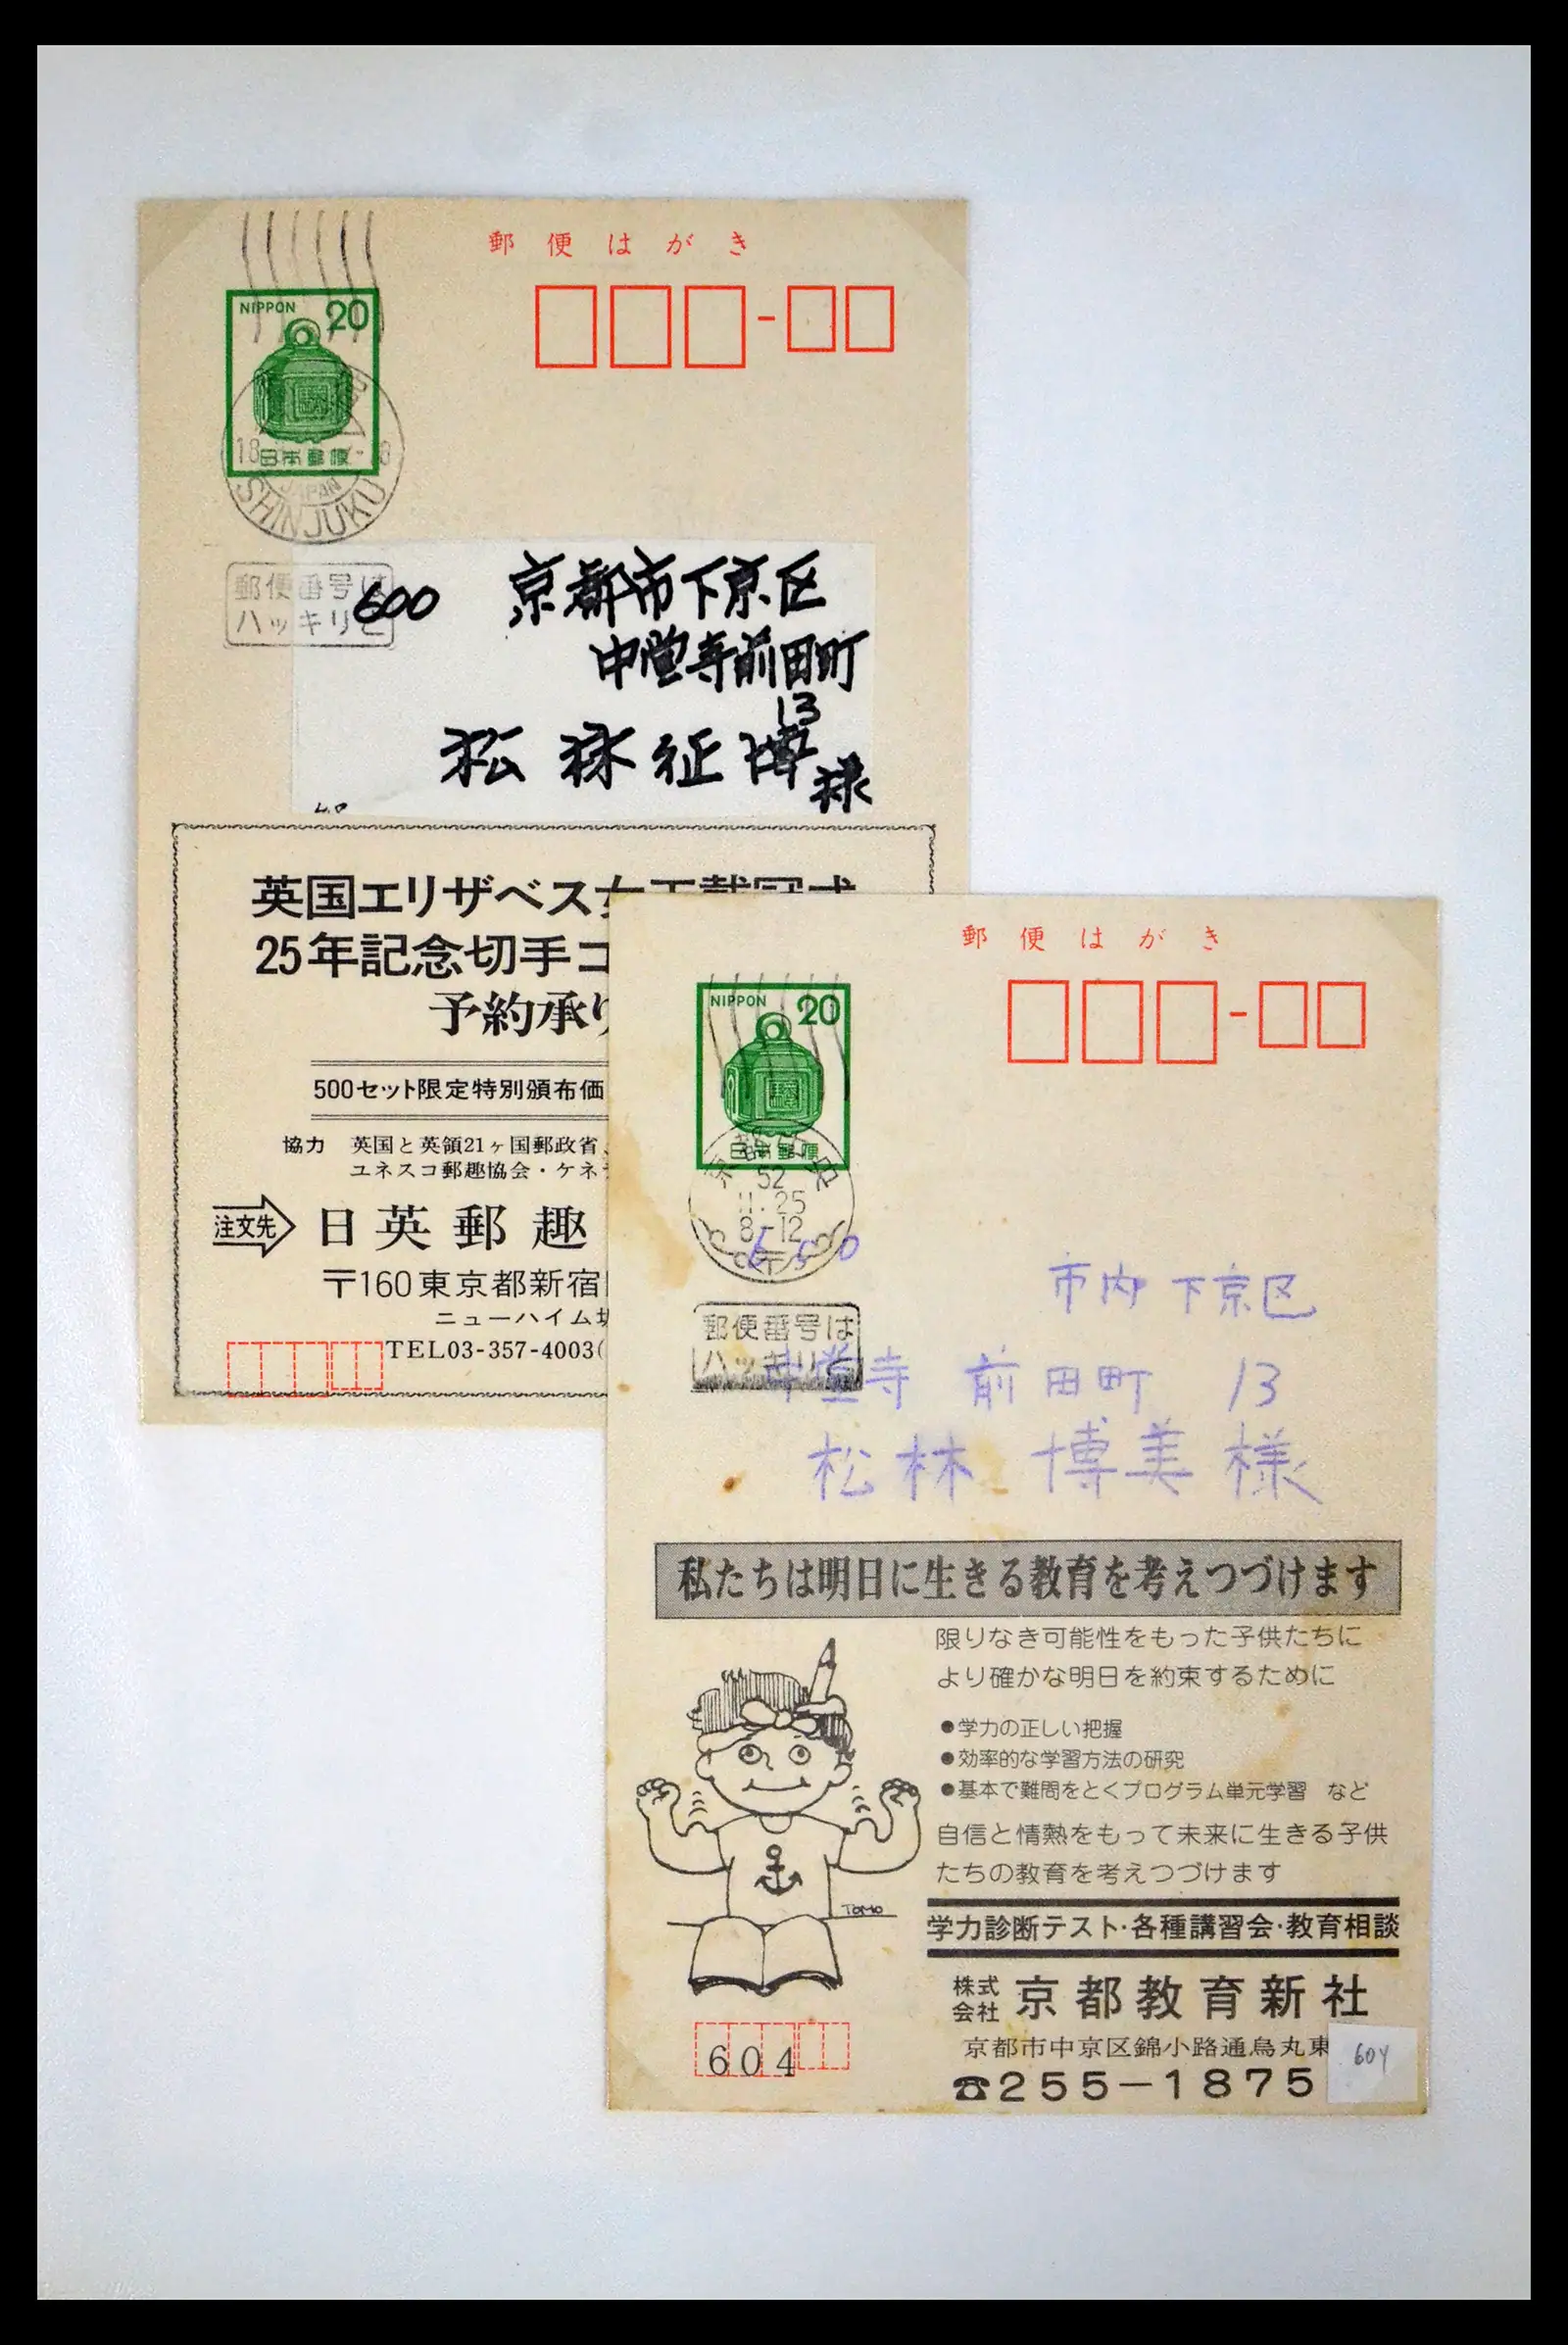 郵便はがき
NIPPON 20
日本郵便
JAPAN
SHINJUKU
郵便番号は
ハッキリと
600 京都市下京区
中堂寺前田町
13
松林征博様
英国エリザベス女王戴冠式
25年記念切手コ
予約承り
500セット限定特別頒布価
協力 英国と英領21ヶ国郵政省、
ユネスコ郵趣協会・ケネ
注文先 日英郵趣
〒160東京都新宿
ニューハイム
TEL03-357-4003(
郵便はがき
NIPPON 20
日本郵便
52
11.25
8-12
600
市内下京区
郵便番号は
ハッキリと
中堂寺 前田町 13
松林 博美様
私たちは明日に生きる教育を考えつづけます
限りなき可能性をもった子供たちに
より確かな明日を約束するために
●学力の正しい把握
●効率的な学習方法の研究
●基本で難問をとくプログラム単元学習 など
自信と情熱をもって未来に生きる子供
たちの教育を考えつづけます
TOMO
学力診断テスト・各種講習会・教育相談
株式会社 京都教育新社
京都市中京区錦小路通烏丸東
☎255-1875
604
604